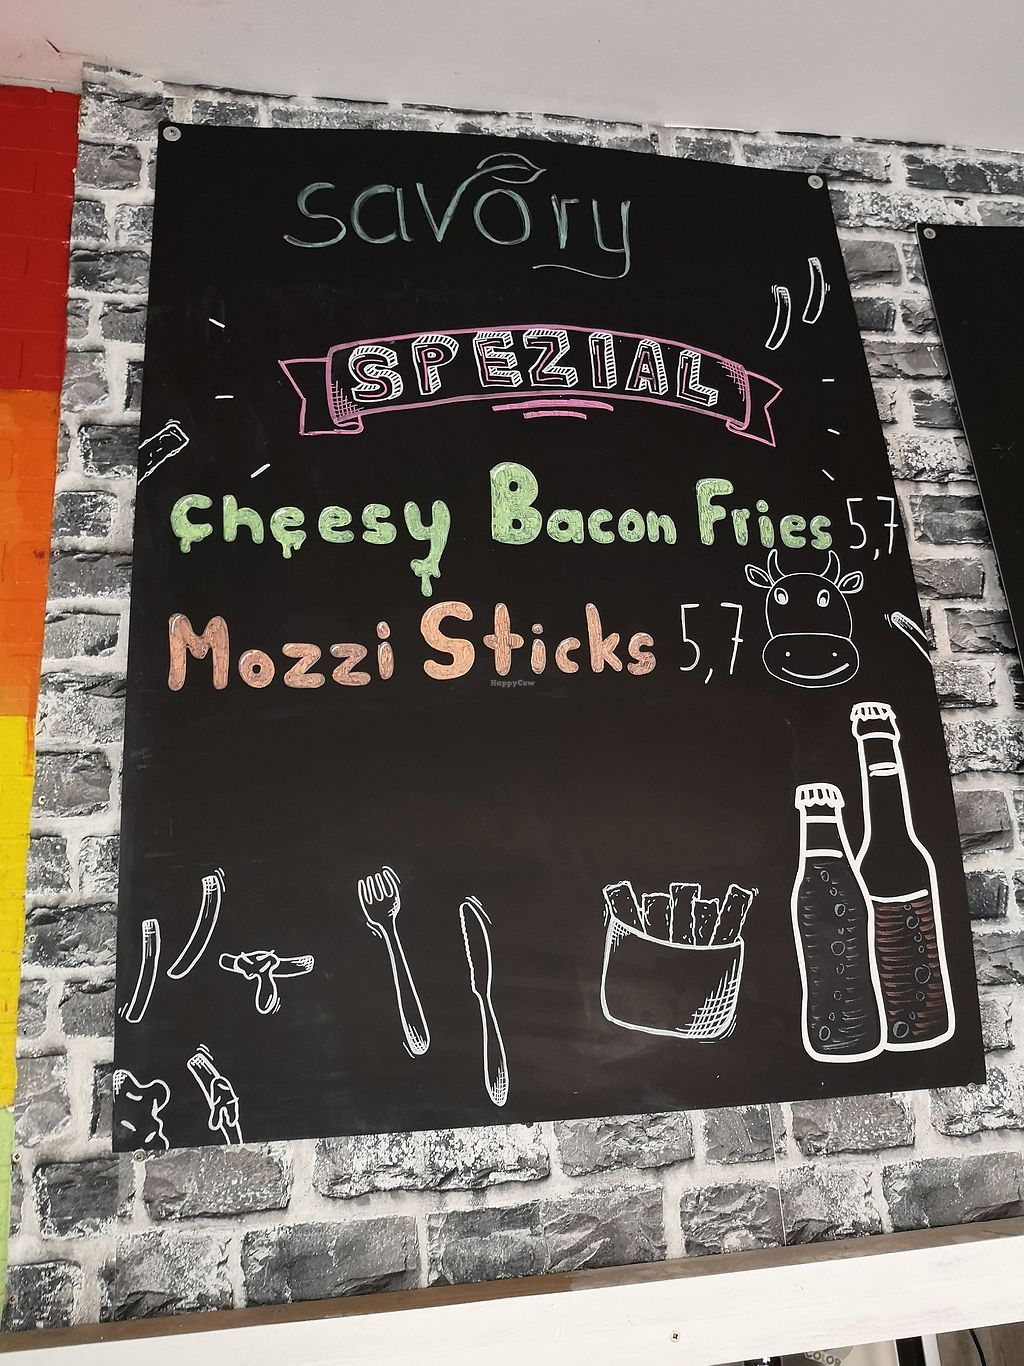 savory
SPEZIAL
Cheesy Bacon Fries 5,7
Mozzi Sticks 5,7
HappyCow
COLOR